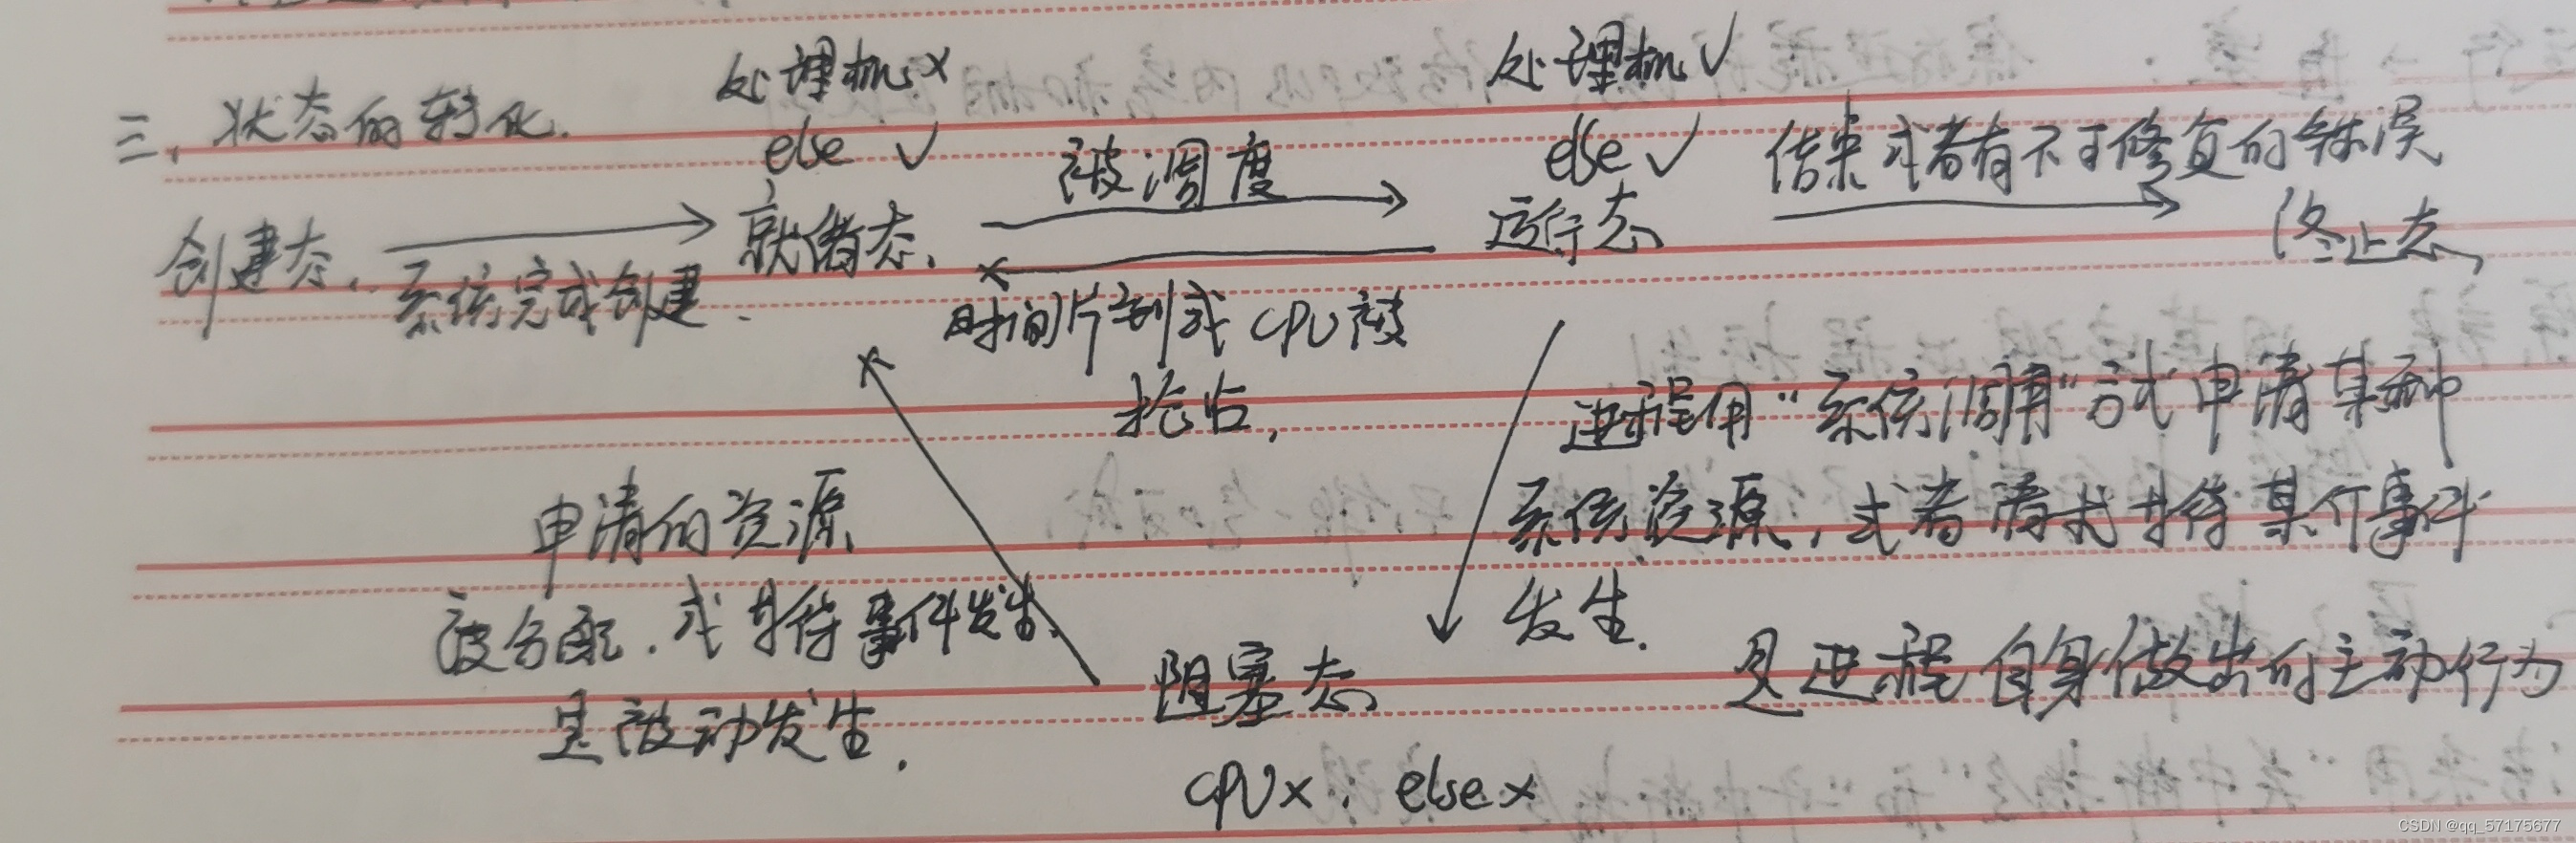 三、状态的转化.
处理机 ×
else ✓
就绪态、
处理机 ✓
else ✓
运行态
创建态、
系统完成创建.
被调度
时间片到或CPU被
抢占,
结束或者有不可修复的错误
终止态、
进程用“系统调用”方式申请某种
系统资源,或者请求等待某个事件
发生.
是进程自身做出的主动行为
申请的资源
被分配.或等待事件发生、
是被动发生.
阻塞态、
CPU×; else×
CSDN @qq_57175677